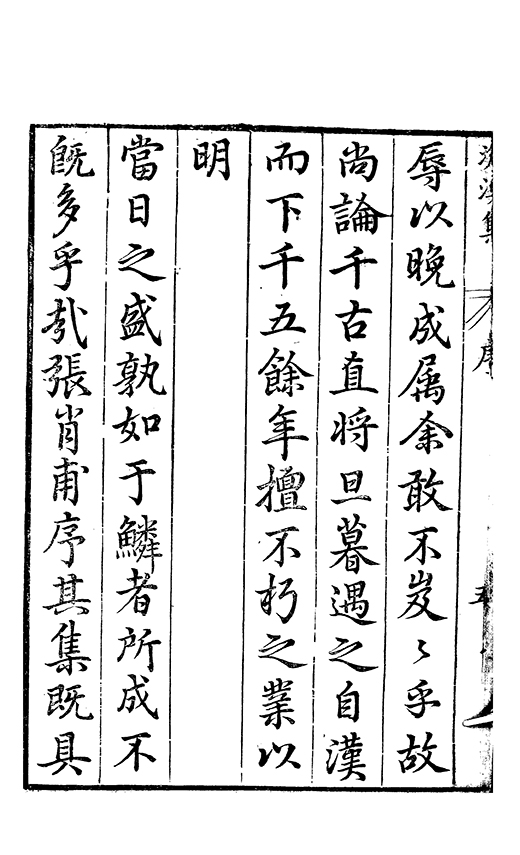 辱以晚成属余敢不岌〻乎故
尚論千古直将旦暮遇之自漢
而下千五餘年擅不朽之業以
明
當日之盛孰如于鱗者所成不
既多乎哉張肖甫序其集既具